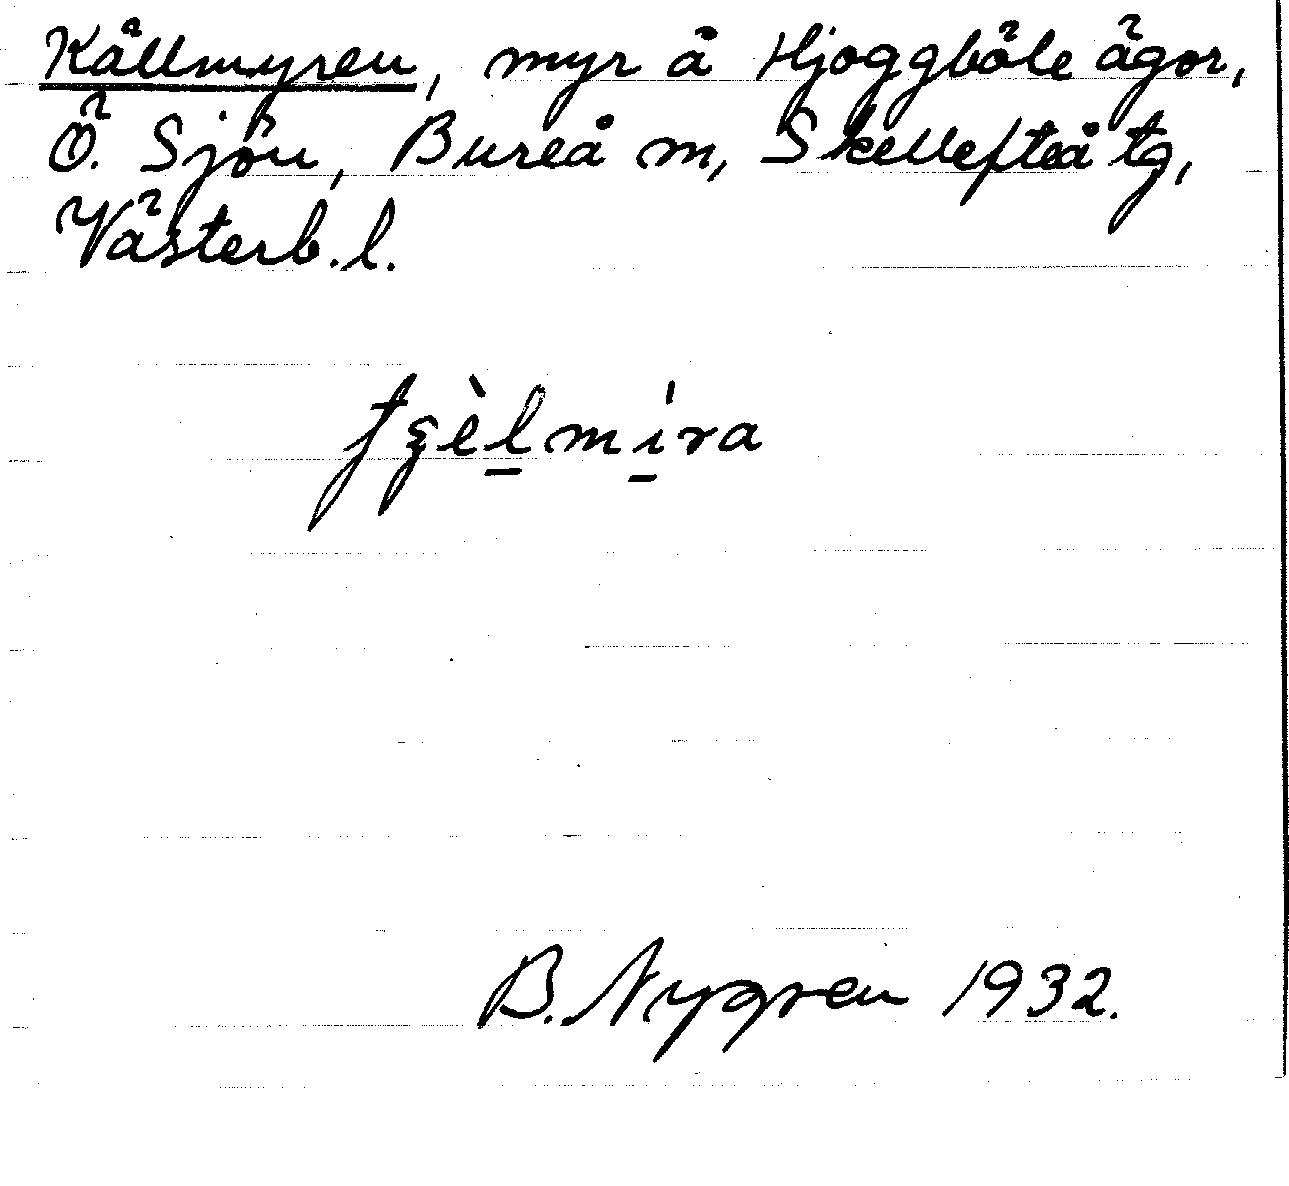 Källmyren, myr å Hjoggböle ägor,
Ö. Sjön, Bureå m, Skellefteå tg,
Västerb. l.
B. Nygren 1932.